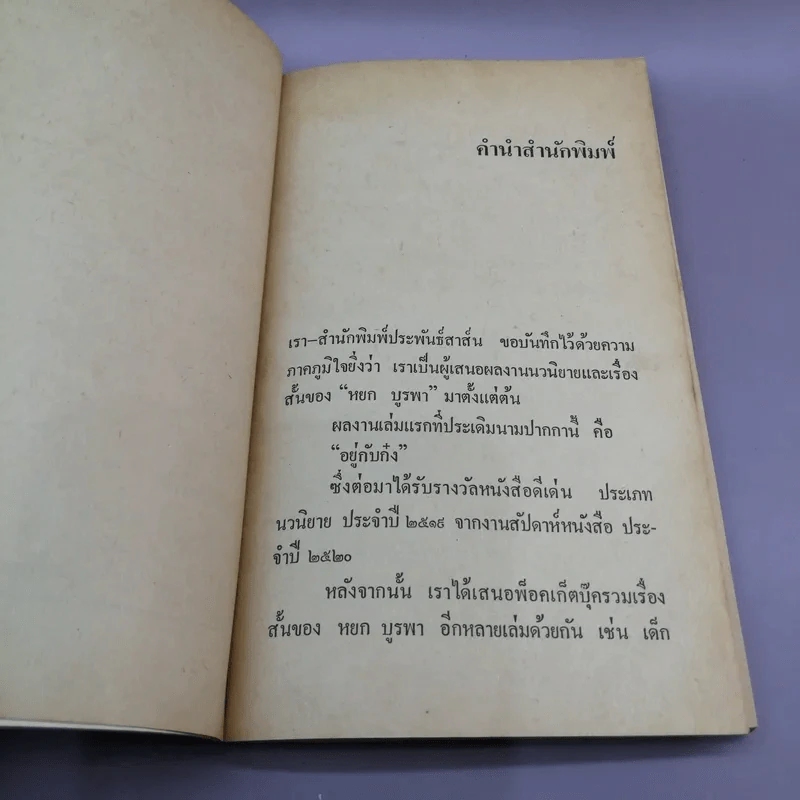 คำนำสำนักพิมพ์
เรา–สำนักพิมพ์ประพันธ์สาส์น ขอบันทึกไว้ด้วยความ
ภาคภูมิใจยิ่งว่า เราเป็นผู้เสนอผลงานนวนิยายและเรื่อง
สั้นของ “หยก บูรพา” มาตั้งแต่ต้น
ผลงานเล่มแรกที่ประเดิมนามปากกานี้ คือ
“อยู่กับก๋ง”
ซึ่งต่อมาได้รับรางวัลหนังสือดีเด่น ประเภท
นวนิยาย ประจำปี ๒๕๑๙ จากงานสัปดาห์หนังสือ ประ-
จำปี ๒๕๒๐
หลังจากนั้น เราได้เสนอพ็อคเก็ตบุ๊ครวมเรื่อง
สั้นของ หยก บูรพา อีกหลายเล่มด้วยกัน เช่น เด็ก